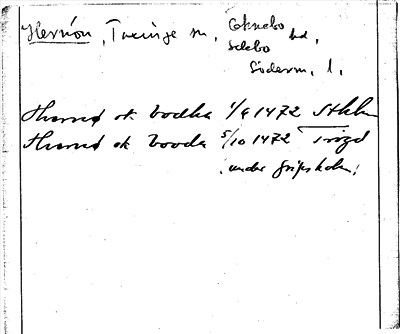 Hernön, Taxinge sn, Öknebo hd,
Selebo
Söderm. l.
Hærnø ok bodha 1/4 1472 Sthlm
Hærnø ok booda 5/10 1472
(under Gripsholm)